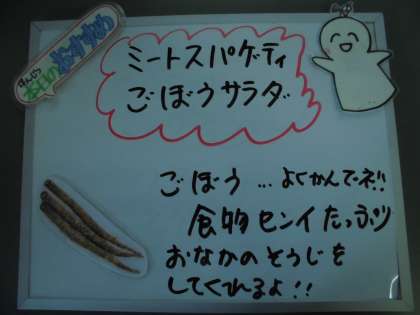 ミートスパゲティ
ごぼうサラダ
ごぼう…よくかんでネ!!
食物センイたっぷり
おなかのそうじを
してくれるよ!!